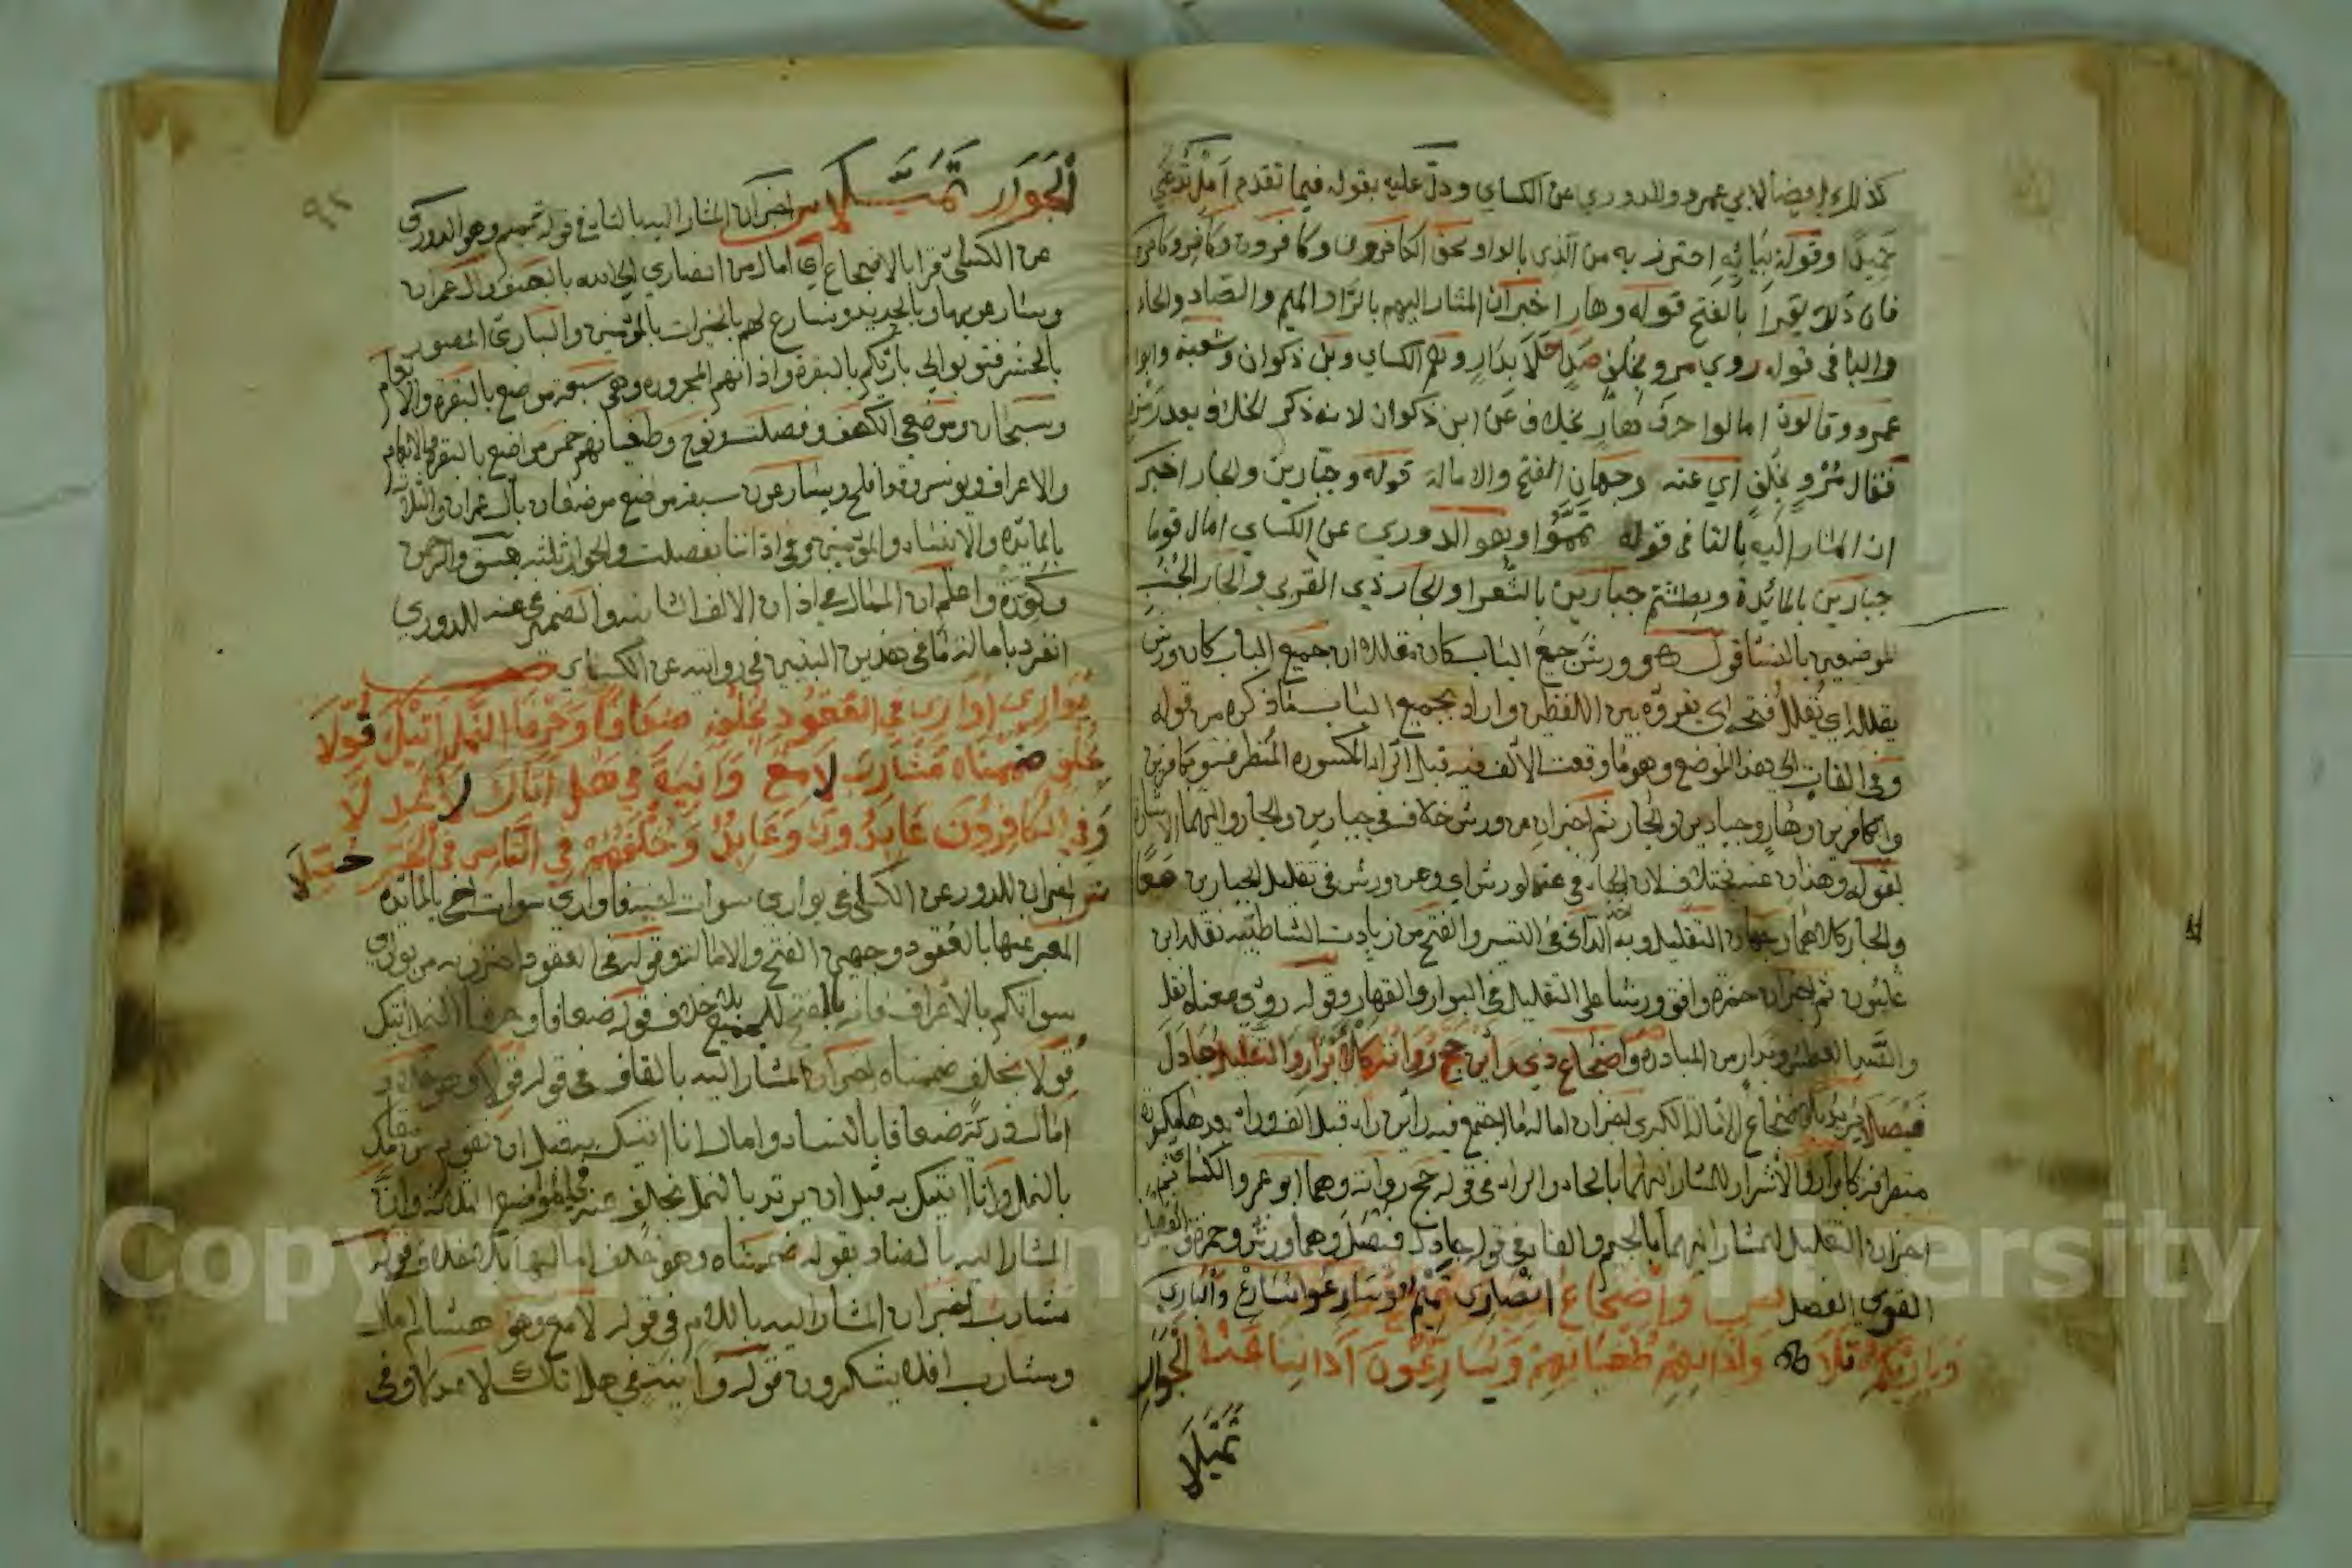 كذلك ايضا لابي عمرو والدوري عن الكساي ودل عليه بقوله فيما تقدم امل تدعى
حميدا وقوله بيائه احترز به من الذي بالواو نحو الكافرون وكافرون وكافر وكافر
فان ذلك يقرا بالفتح قوله وهار اخبر ان المشار اليهم بالراء والميم والصاد والحاء
والبا في قوله روي مرو بخلف صد حلا بدار وهم الكساي وبن ذكوان وشعبة وابو
عمرو وقالون امالوا حرف هار بخلاف عن ابن ذكوان لانه ذكر الخلاف بعد رمزه
فقال مرو بخلف اي عنه وجهان الفتح والامالة قوله وجبارين والجار اخبر
ان المشار اليه بالتا في قوله تمموا وهو الدوري عن الكساي امال قوما
جبارين بالمائدة وبطشتم جبارين بالشعرا والجار ذي القربي والجار الجنب
الموضعين بالنسا قوله وورش جميع الباب كان مقللا ان جميع الباب كان ورش
يقلله اي يقلل فتحه اي يقروه بين اللفظين واراد بجميع الباب ما ذكره من قوله
وفي الفات الي هذا الموضع وهو ما وقعت الالف فيه قبل الراء المكسورة المتطرفة وكافرين
والكافرين وهار وجبارين والجار ثم اخبر ان عن ورش خلاف في جبارين والجار واليهما الاشارة
بقوله وهذان عنه باختلاف لان الهاء في عنه لورش اي وعن ورش في تقليل الجبارين معا
والجار كلاهما وجهان التقليل وبه الداني في التيسير والفتح من زيادت الشاطبية نقله ابن
غلبون ثم اخبر ان حمزة وافق ورشا على التقليل في البوار والقهار وقوله روي معناه نقل
والصدا العطش وبدار من المبادرة واضجاع ذي راين حج رواته كالابرار والتقليل جادل
فيصلا يريد بالاضجاع الامالة الكبرى اخبر ان امالة ما اجتمع فيه راين راء قبل الف وراء بعدها مكسورة
متطرفة كالابرار والاشرار للمشار اليهما بالحاء والراء في قوله حج رواته وهما ابو عمرو والكسائي ثم
اخبر ان التقليل للمشار اليهما بالجيم والفا في قوله جادل فيصلا وهما ورش وحمزة والفيصل
القوي الفصل ص واضجاع انصاري تميم وسارعوا نسارع والباري
وبارئكم تلا واذانهم طغيانهم ويسارعون اذاننا عنه الجوار
تمثلا
الجوار تمثلا ش اخبر ان المشار اليه بالتا في قوله تميم وهو الدوري
عن الكسائي قرا بالاضجاع اي امال من انصاري الي الله بالصف وال عمران
وسارعوا بها وبالحديد ونسارع لهم بالخيرات بالمؤمنين والباري المصور
بالحشر فتوبوا الي بارئكم بالبقرة واذانهم المجرورة وهي سبعة مواضع بالبقرة والانعام
وسبحان وموضعي الكهف وفصلت ونوح وطغيانهم خمس مواضع بالبقرة والانعام
والاعراف ويونس وقد افلح ويسارعون سبعة مواضع موضعان بال عمران والثلاثة
بالمائدة والانبياء والمؤمنين وفي اذاننا بفصلت والجوار ثلثة بعسق والرحمن
وكورت واعلم ان الممال في اذان الالف الثانية والضمير في عنه للدوري
انفرد بامالة ما في هذين البيتين في روايته عن الكسائي ص
يواري اواري في العقود بخلفه ضعافا وحرفا النمل اتيك قولا
بخلف ضممناه مشارب لامع وانية في هل اتاك لاعدلا
وفي الكافرون عابدون وعابد وخلفهم في الناس في الجر حصلا
ش اخبر ان للدوري عن الكسائي في يواري سوات اخيه فاواري سوات اخي بالمائدة
المعبر عنها بالعقود وجهين الفتح والامالة وقوله في العقود احترز به من يواري
سواتكم بالاعراف فانه بالفتح للجميع بلا خلاف قوله ضعافا وحرفا النمل اتيك
قولا بخلف ضممناه اخبر ان المشار اليه بالقاف في قوله قولا وهو خلاد
امال ذرية ضعافا بالنساء وامال انا اتيك به قبل ان تقوم من مقامك
بالنمل وانا اتيك به قبل ان يرتد بالنمل بخلاف عنه في المواضع الثلاثة وان
المشار اليه بالضاد بقوله ضممناه وهو خلف امالها بلا خلاف قوله
مشارب اخبر ان المشار اليه باللام في قوله لامع وهو هشام امال
ومشارب افلا يشكرون قوله وانية في هل اتاك لاعدلا وفي